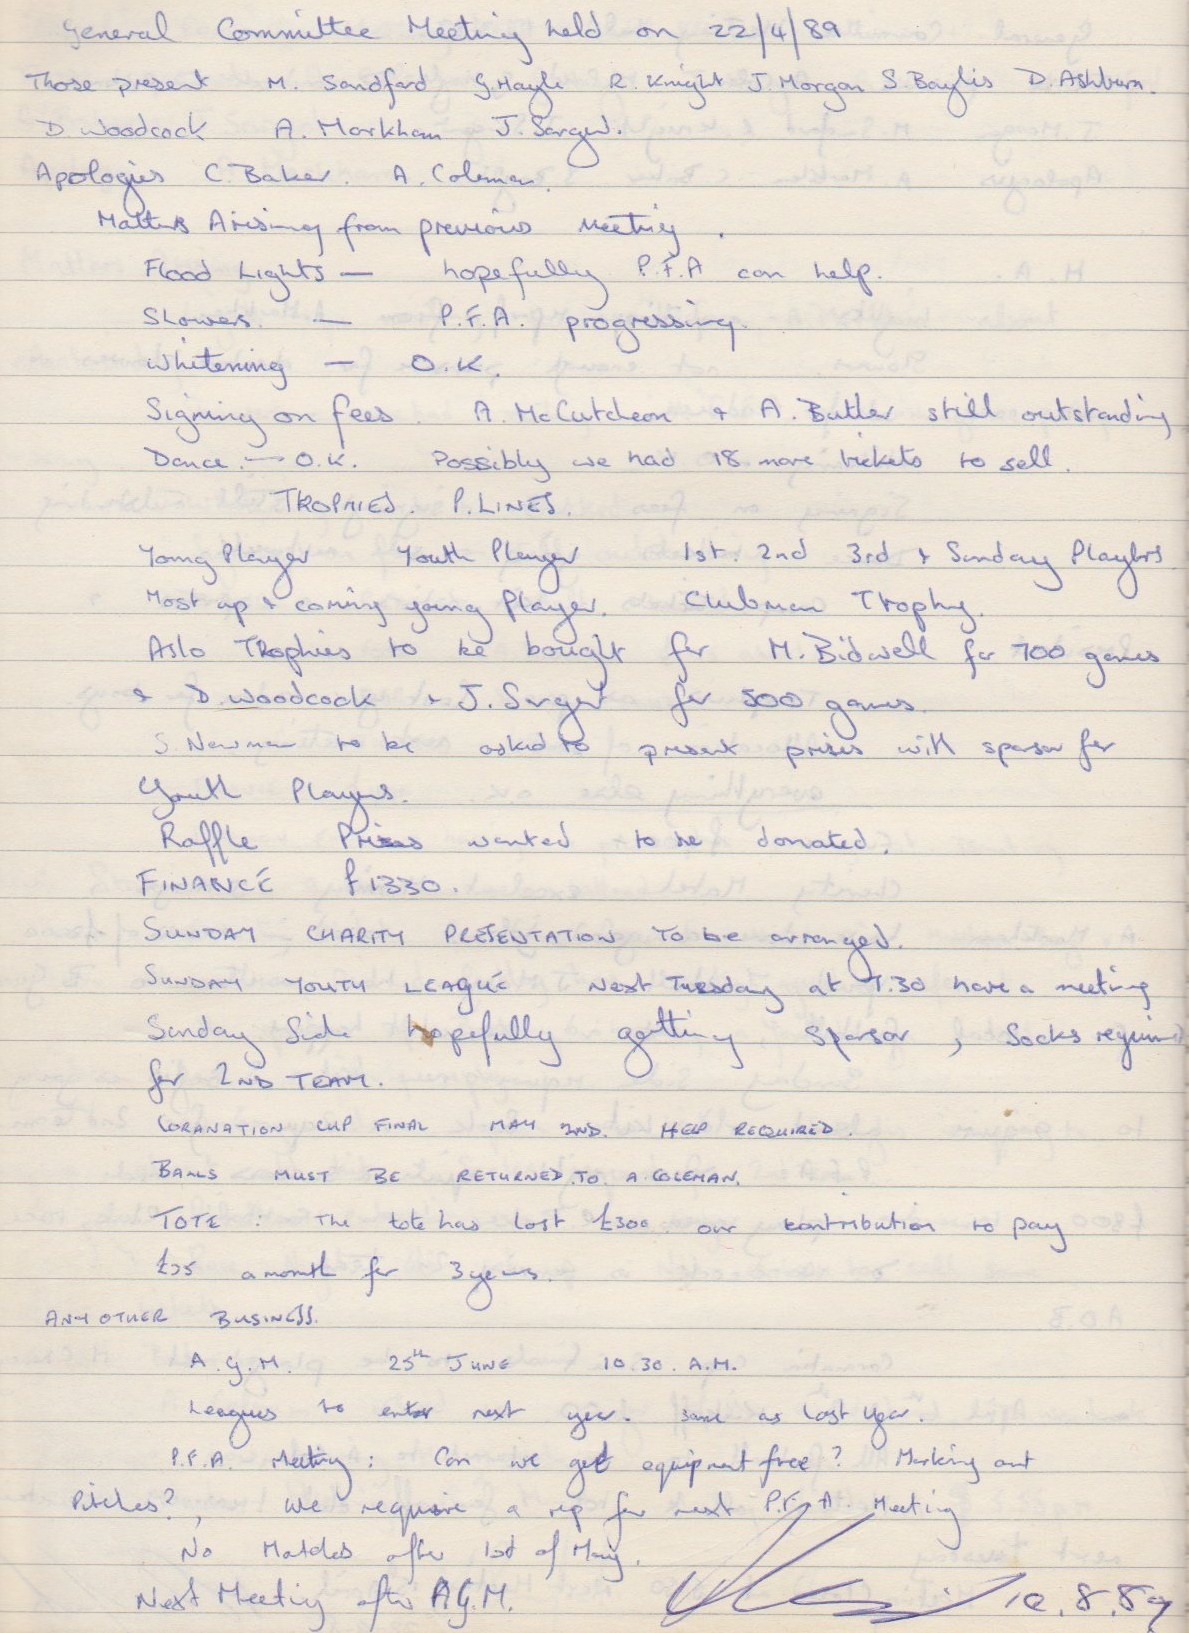 General Committee Meeting held on 22/4/89
Those present M. Sandford G. Hayle R. Knight J. Morgan S. Baylis D. Ashburn.
D. Woodcock A. Markham J. Sargent.
Apologies C. Baker. A. Coleman.
Matters Arising from previous Meeting.
Flood Lights — hopefully P.F.A can help.
Showers. — P.F.A. progressing.
Whitening — O.K.
Signing on fees. A. McCutcheon + A. Butler still outstanding
Dance. — O.K. Possibly we had 18 more tickets to sell.
TROPHIES. P. LINES.
Young Player Youth Player 1st. 2nd 3rd + Sunday Players
Most up + coming young Player. Clubman Trophy.
Aslo Trophies to be bought for M. Bidwell for 700 games
+ D. Woodcock + J. Sargent for 500 games.
S. Newman to be asked to present prizes with sponsor for
Youth Players.
Raffle Prizes wanted to be donated.
FINANCE £1330.
SUNDAY CHARITY PRESENTATION To be arranged.
SUNDAY YOUTH LEAGUE Next Tuesday at 7.30 have a meeting
Sunday Side hopefully getting sponsor, Socks required
for 2ND TEAM.
CORANATION CUP FINAL MAY 2ND. HELP REQUIRED.
BALLS MUST BE RETURNED TO A. COLEMAN.
TOTE : The tote has lost £300 our contribution to pay
£25 a month for 3 years.
ANY OTHER BUSINESS.
A.G.M. 25th JUNE 10.30. A.M.
Leagues to enter next year. Same as last year.
P.F.A. Meeting: Can we get equipment free? Marking out
Pitches?, We require a rep for next P.F.A. Meeting
No Matches after 1st of May.
Next Meeting after A.G.M. 10.8.89